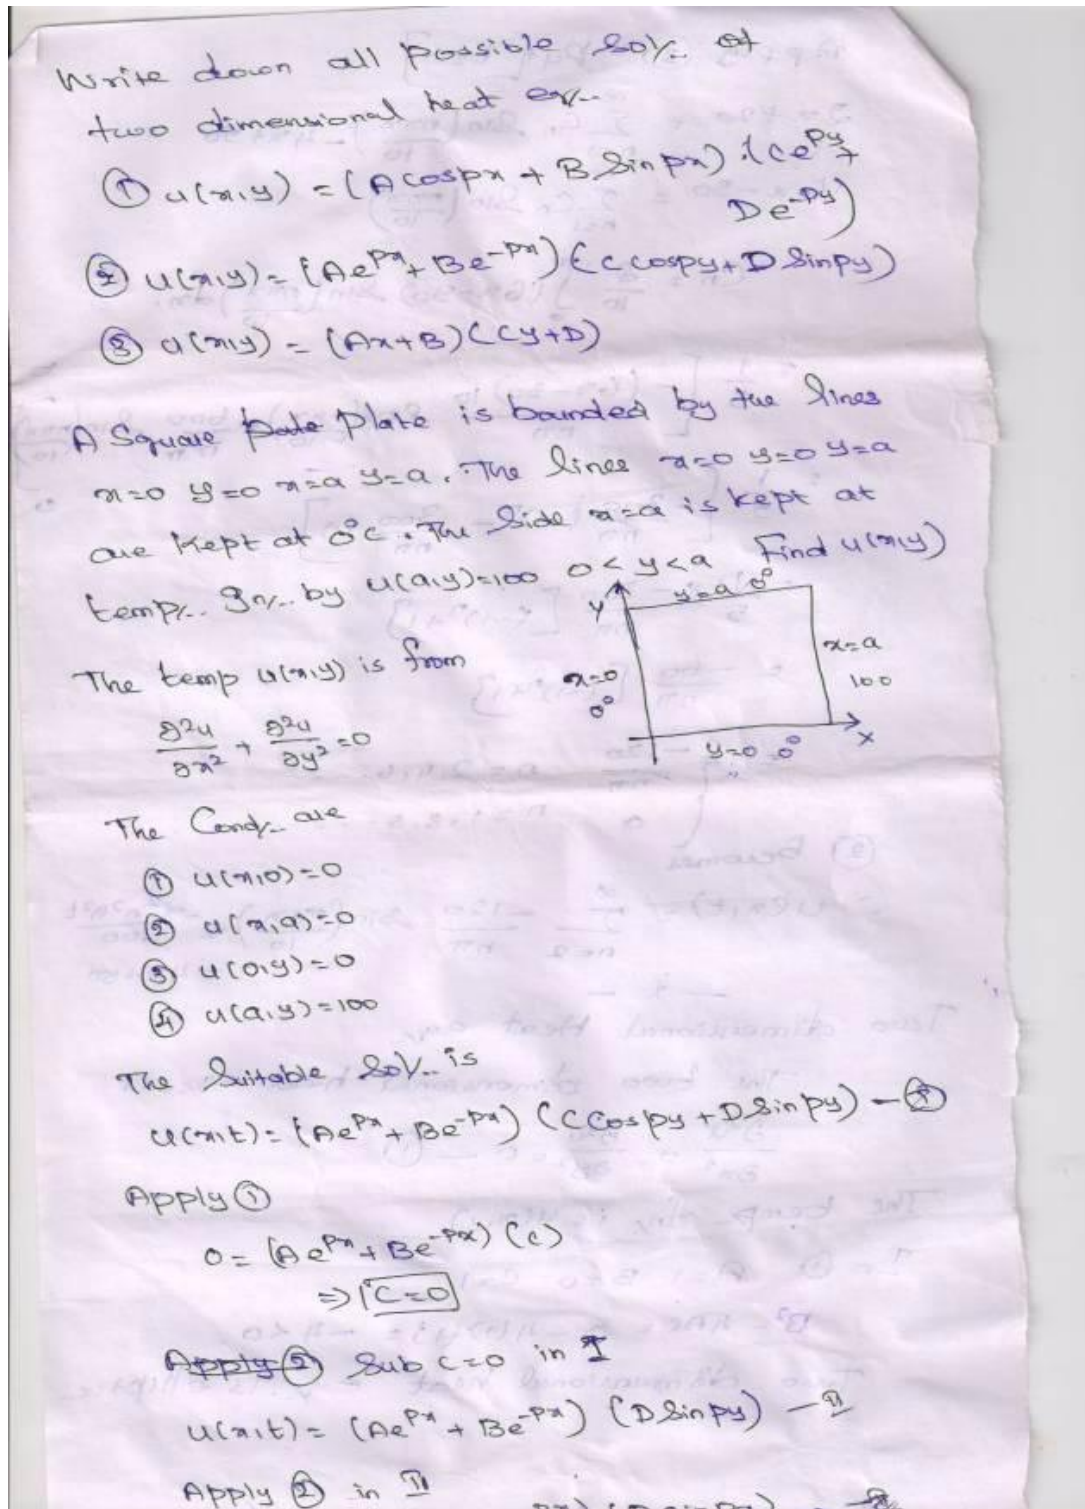 Write down all possible sol/.. of
two dimensional heat eq/..
① u(x,y) = (A cospx + B Sin px) (Ce^{py} +
De^{-py})
② u(x,y) = (Ae^{px} + Be^{-px}) (C cospy + D Sinpy)
③ u(x,y) = (Ax+B) (Cy+D)
A Square plate is bounded by the lines
x=0 y=0 x=a y=a. The lines x=0 y=0 y=a
are kept at 0°C. The Side x=a is kept at
temp/.. Gn/.. by u(a,y)=100 0<y<a Find u(x,y)
Y
y=a 0°
x=0
0°
x=a
100
y=0 0°
X
The temp u(x,y) is from
∂²u/∂x² + ∂²u/∂y² = 0
The Cond/.. are
① u(x,0)=0
② u(x,a)=0
③ u(0,y)=0
④ u(a,y)=100
The Suitable Sol/.. is
u(x,t) = (Ae^{px} + Be^{-px}) (C Cospy + D Sinpy) – ①
Apply ①
0 = (Ae^{px} + Be^{-px}) (c)
⇒ C=0
Apply ② Sub C=0 in I
u(x,t) = (Ae^{px} + Be^{-px}) (D Sinpy) – II
Apply ② in II